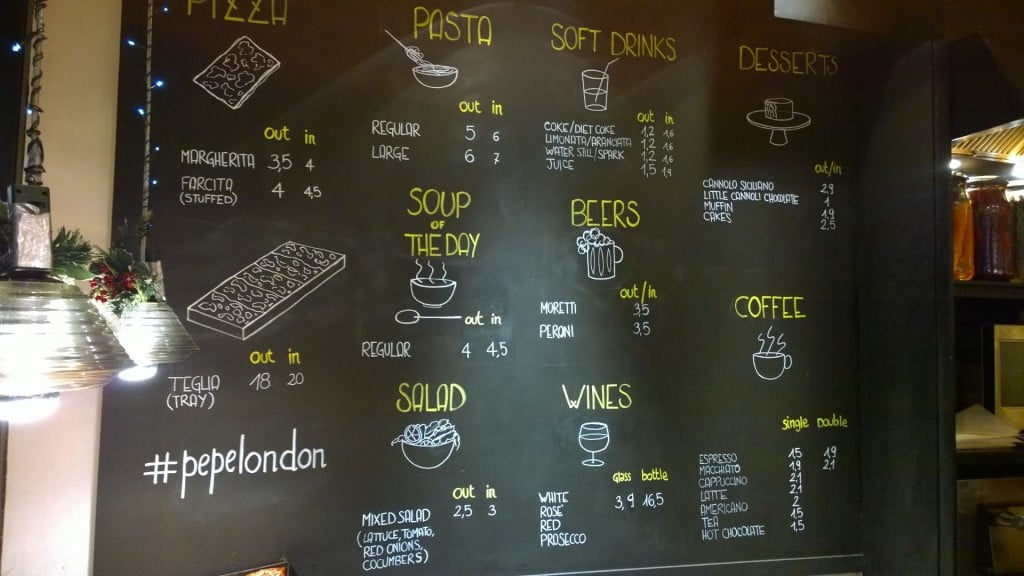 PIZZA
out in
MARGHERITA 3,5 4
FARCITA 4 4,5
(STUFFED)
out in
TEGLIA 18 20
(TRAY)
#pepelondon
PASTA
out in
REGULAR 5 6
LARGE 6 7
SOUP
OF
THE DAY
out in
REGULAR 4 4,5
SALAD
out in
MIXED SALAD 2,5 3
(LATTUCE, TOMATO,
RED ONIONS,
COCUMBERS)
SOFT DRINKS
out in
COKE/DIET COKE 1,2 1,6
LIMONATA/ARANCIATA 1,2 1,6
WATER STILL/SPARK 1,2 1,6
JUICE 1,5 1,9
BEERS
out/in
MORETTI 3,5
PERONI 3,5
WINES
glass bottle
WHITE 3,9 16,5
ROSE
RED
PROSECCO
DESSERTS
out/in
CANNOLO SICILIANO 2,9
LITTLE CANNOLI CHOCOLATE 1
MUFFIN 1,9
CAKES 2,5
COFFEE
single Double
ESPRESSO 1,5 1,9
MACCHIATO 1,9 2,1
CAPPUCCINO 2,1
LATTE 2,1
AMERICANO
TEA 1,5
HOT CHOCOLATE